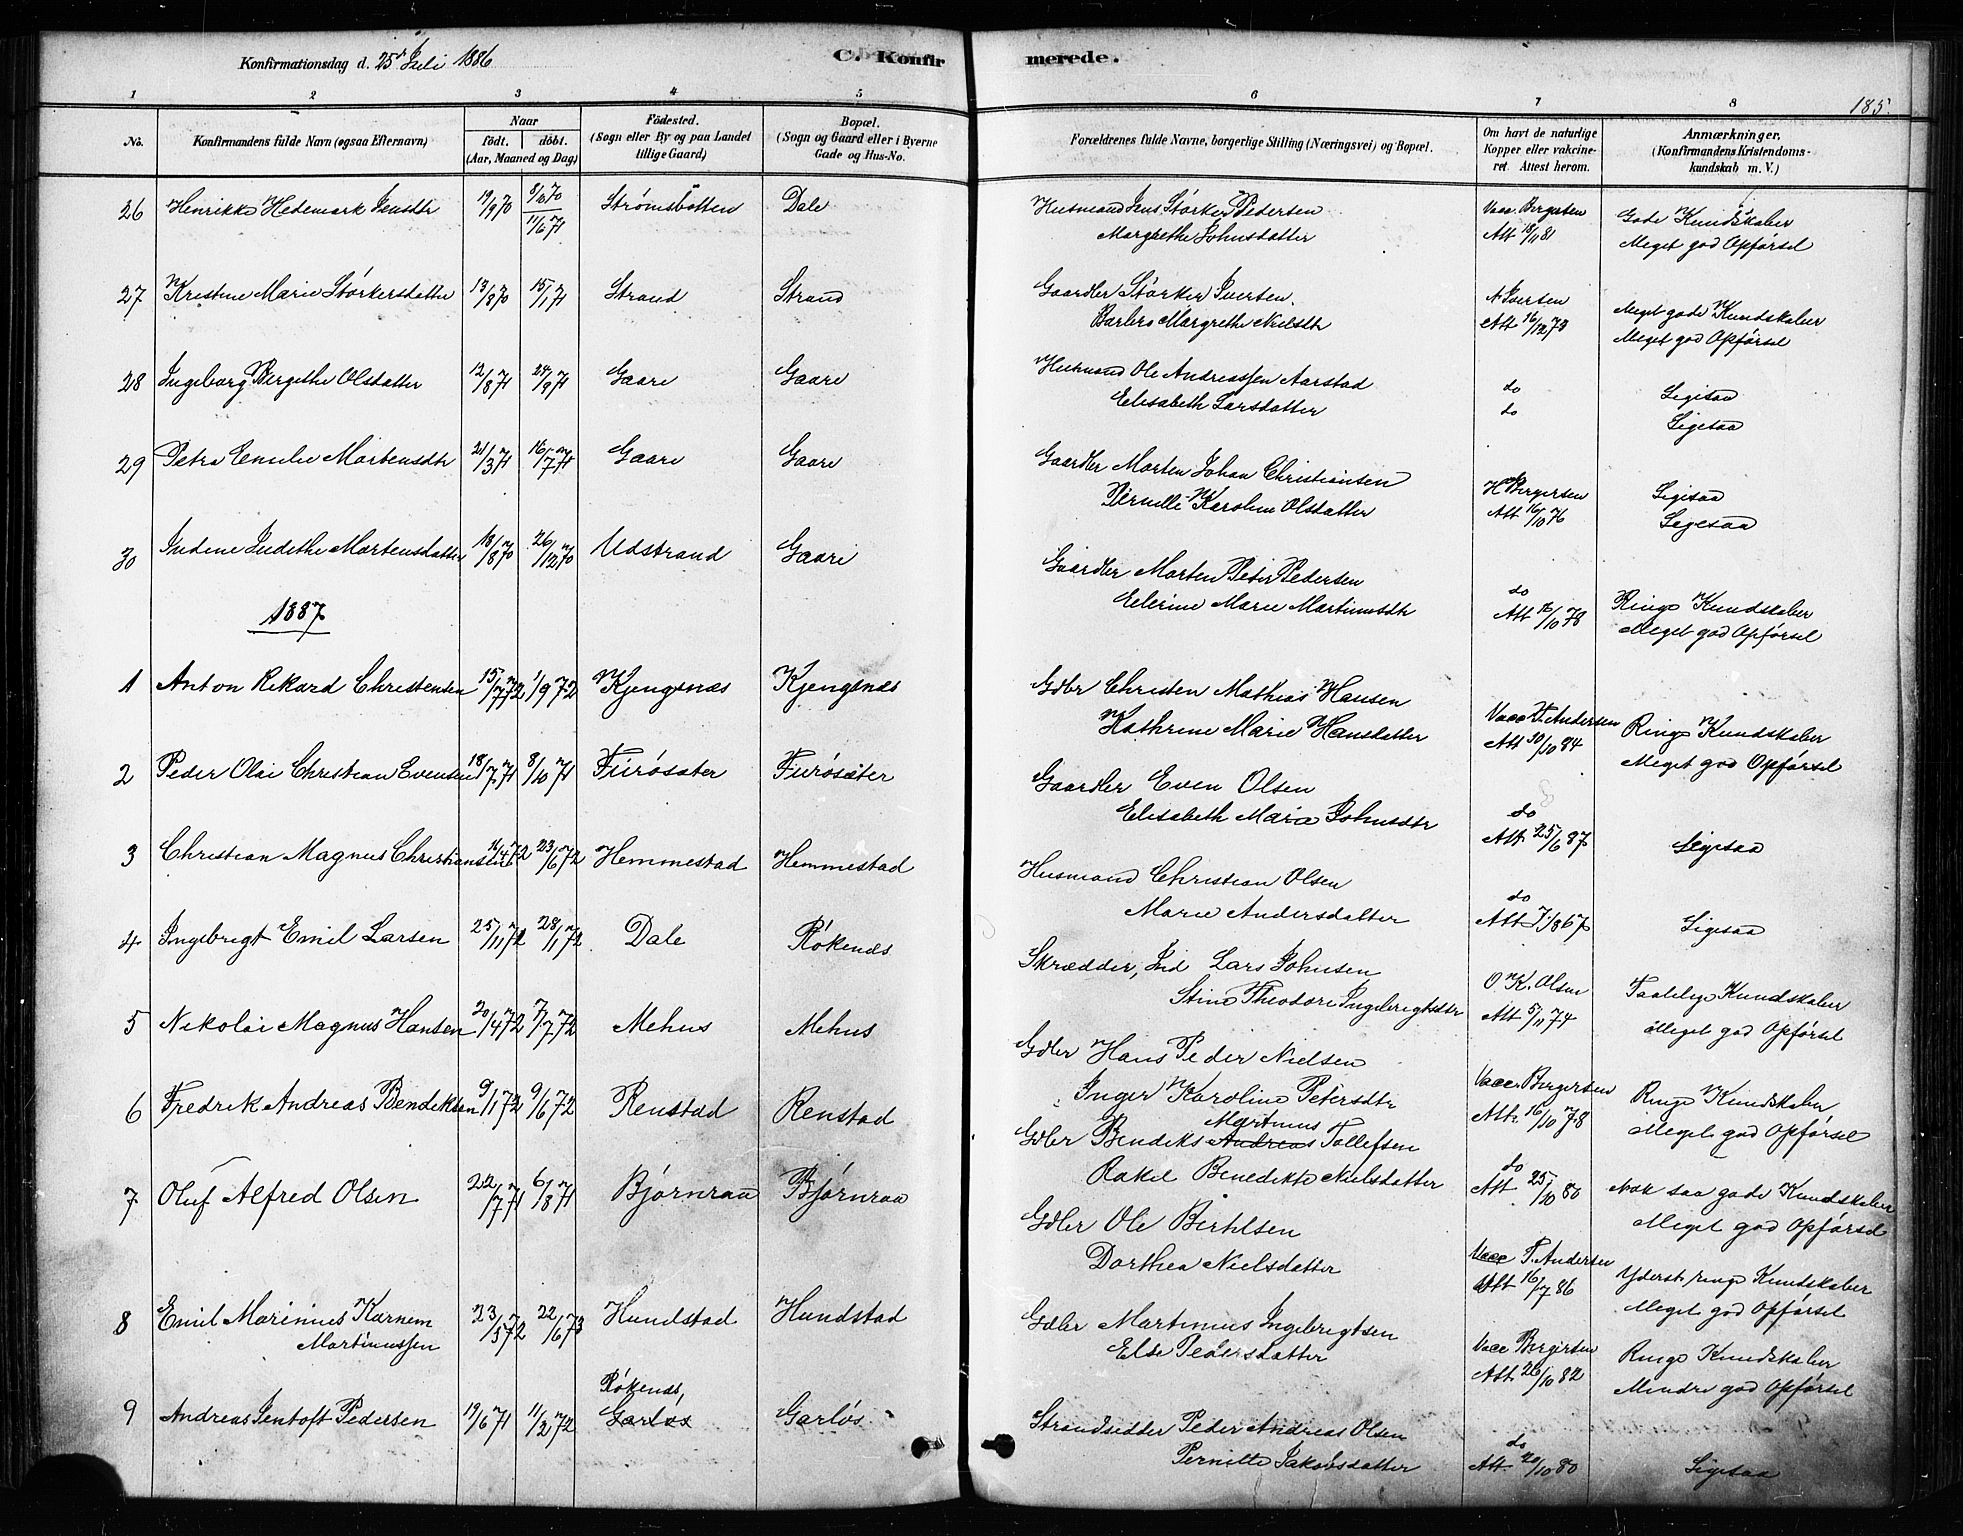 Konfirmationsdag d. 25de Juli 1886
C. Konfirmerede.
185.
1 2 3 4 5 6 7 8
No.
Konfirmandens fulde Navn (ogsaa Efternavn)
Naar
födt. döbt.
(Aar, Maaned og Dag)
Födested.
(Sogn eller By og paa Landet
tillige Gaard)
Bopæl.
(Sogn og Gaard eller i Byerne
Gade og Hus-No.
Forældrenes fulde Navne, borgerlige Stilling (Næringsvei) og Bopæl.
Om havt de naturlige
Kopper eller vakcine-
ret. Attest herom.
Anmærkninger.
(Konfirmandens Kristendoms-
kundskab m. V.)
26 Henrikke Hedemark Jensdtr 19/9 70 9/10 70 Strømsbotten Dale Husmand Jens Störker Pedersen Vacc. Bergersen Gode Kundskaber
11/6 71 Margrethe Johnsdatter Att 18/11 81 Meget god Opførsel
27 Kristine Marie Störkersdatter 13/8 70 15/1 71 Strand Strand Gaardbr Störker Iversen. A Iversen Meget gode Kundskaber
Barbro Margrethe Nielsdtr Att 16/12 73 Meget god Opførsel
28 Ingeborg Bergithe Olsdatter 12/8 71 24/9 71 Gaare Gaare Husmand Ole Andreassen Aarstad do Ligesaa
Elisabeth Larsdatter do Ligesaa
29 Petra Emilie Mortensdtr 21/3 71 16/7 71 Gaare Gaare Gaardbr Morten Johan Christiansen H Bergersen Ligesaa
Pernille Karoline Olsdatter Att 16/10 76 Ligesaa
30 Indine Judithe Mortensdatter 18/8 70 26/12 70 Udstrand Gaare Gaardbr Morten Peter Pedersen do Ringe Kundskaber
Elerine Marie Martinusdtr Att 16/10 78 Meget god Opførsel
1887
1 Anton Rikard Christensen 15/7 72 1/9 72 Kjengsnæs Kjengsnæs Gdbr Christen Mathias Hansen Vacc T. Andersen Ringe Kundskaber
Kathrine Marie Hansdatter Att 30/10 84 Meget god Opførsel
2 Peder Olai Christian Evensen 18/7 71 8/10 71 Furøsæter Furøsæter Gaardbr Even Olsen do Ligesaa
Elisabeth Maria Johnsdtr Att 25/6 87
3 Christian Magnus Christiansen 16/4 72 23/6 72 Hemmestad Hemmestad Husmand Christian Olsen do Ligesaa
Marie Andersdatter Att
4 Ingebrigt Emil Larsen 25/11 72 28/1 72 Dale Røkenæs Skrædder, Ind Lars Johnsen O. K. Olsen Taalelige Kundskaber
Stine Theodore Ingebrigtsdtr Att 5/11 74 Meget god Opførsel
5 Nikolai Magnus Hansen 20/4 72 7/7 72 Mehus Mehus Gdbr Hans Peder Nielsen Vacc Bergersen Ringe Kundskaber
Inger Karoline Petersdtr Att. 16/10 78 Meget god Opførsel
6 Fredrik Andreas Bendiksen 9/1 72 9/6 72 Renstad Renstad Gdbr Bendiks Andreas Martinus Tollefsen do Nok saa gode Kundskaber
Rakel Benedikte Nielsdatter Att 25/10 80 Meget god Opførsel
7 Oluf Alfred Olsen 22/7 71 6/8 71 Bjørnraa Bjørnraa Gdbr Ole Berthelsen Vacc T. Andersen Yderst ringe Kundskaber
Dorthea Nielsdatter Att 16/7 86 Meget god Opførsel
8 Emil Marinius Karnem 23/3 72 22/6 73 Hundstad Hundstad Gdbr Martinius Ingebrigtsen Vacc Bergersen Ringe Kundskaber
Martinussen Else Pedersdatter Att 26/10 82 Mindre god Opførsel
Røkenæs,
9 Andreas Jentoft Pedersen 19/6 71 11/2 72 Garløs Garløs. Strandsidder Peder Andreas Olsen do Ligesaa
Pernille Jakobsdatter Att. 20/10 80